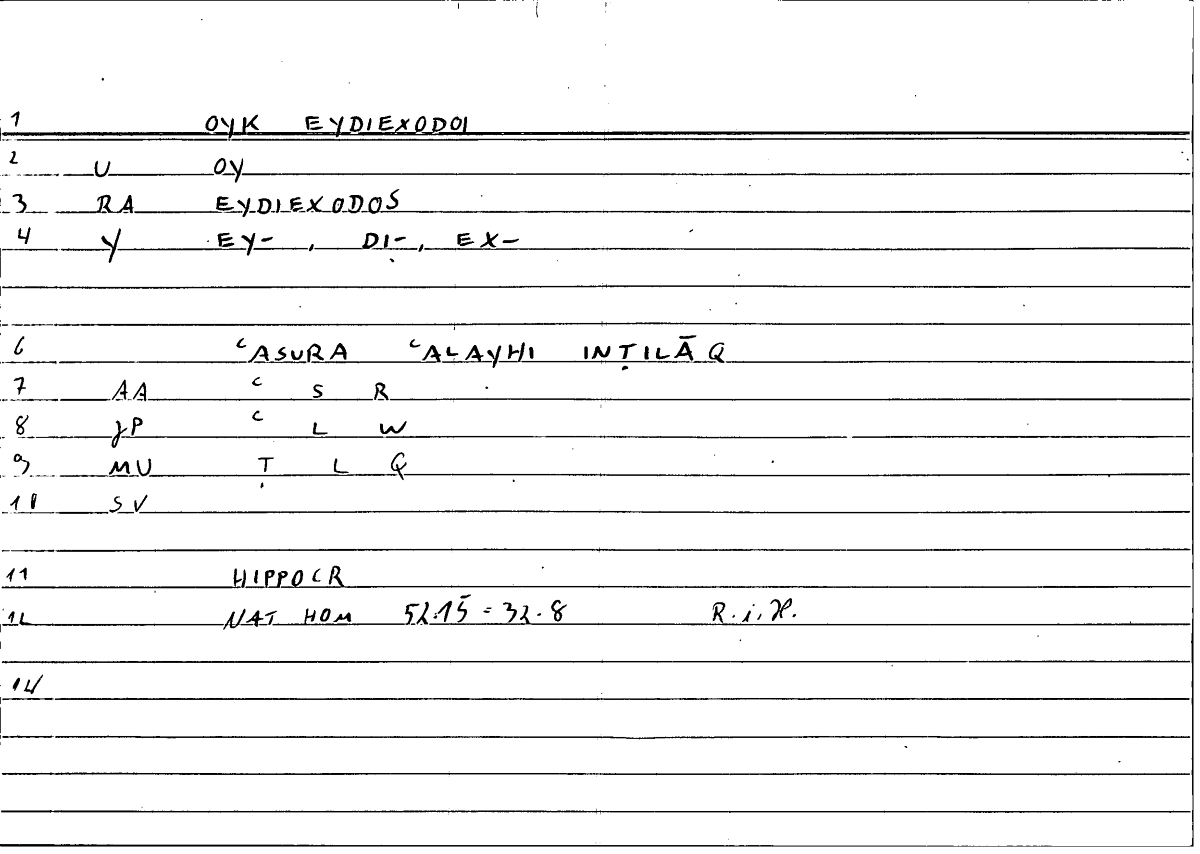 1 OYK EYDIEXODOI
2 U OY
3 RA EYDIEXODOS
4 Y EY- , DI- , EX-
6 ʿASURA ʿALAYHI INṬILĀQ
7 AA ʿ S R
8 JP ʿ L W
9 MU Ṭ L Q
10 SV
11 HIPPOCR
12 NAT HOM 52.15 = 32.8 R.i.H.
14